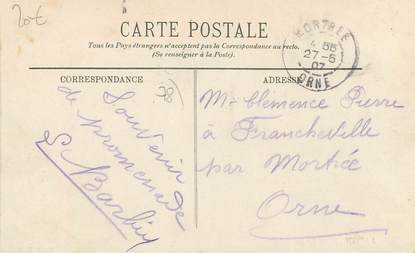 20€
CARTE POSTALE
Tous les Pays étrangers n'acceptent pas la Correspondance au recto.
(Se renseigner à la Poste).
MORTRÉE
4 55
27-5
07
ORNE
CORRESPONDANCE
ADRESSE
Souvenir
de promenade
Mr Clémence Pierre
à Francheville
par Mortrée
Orne